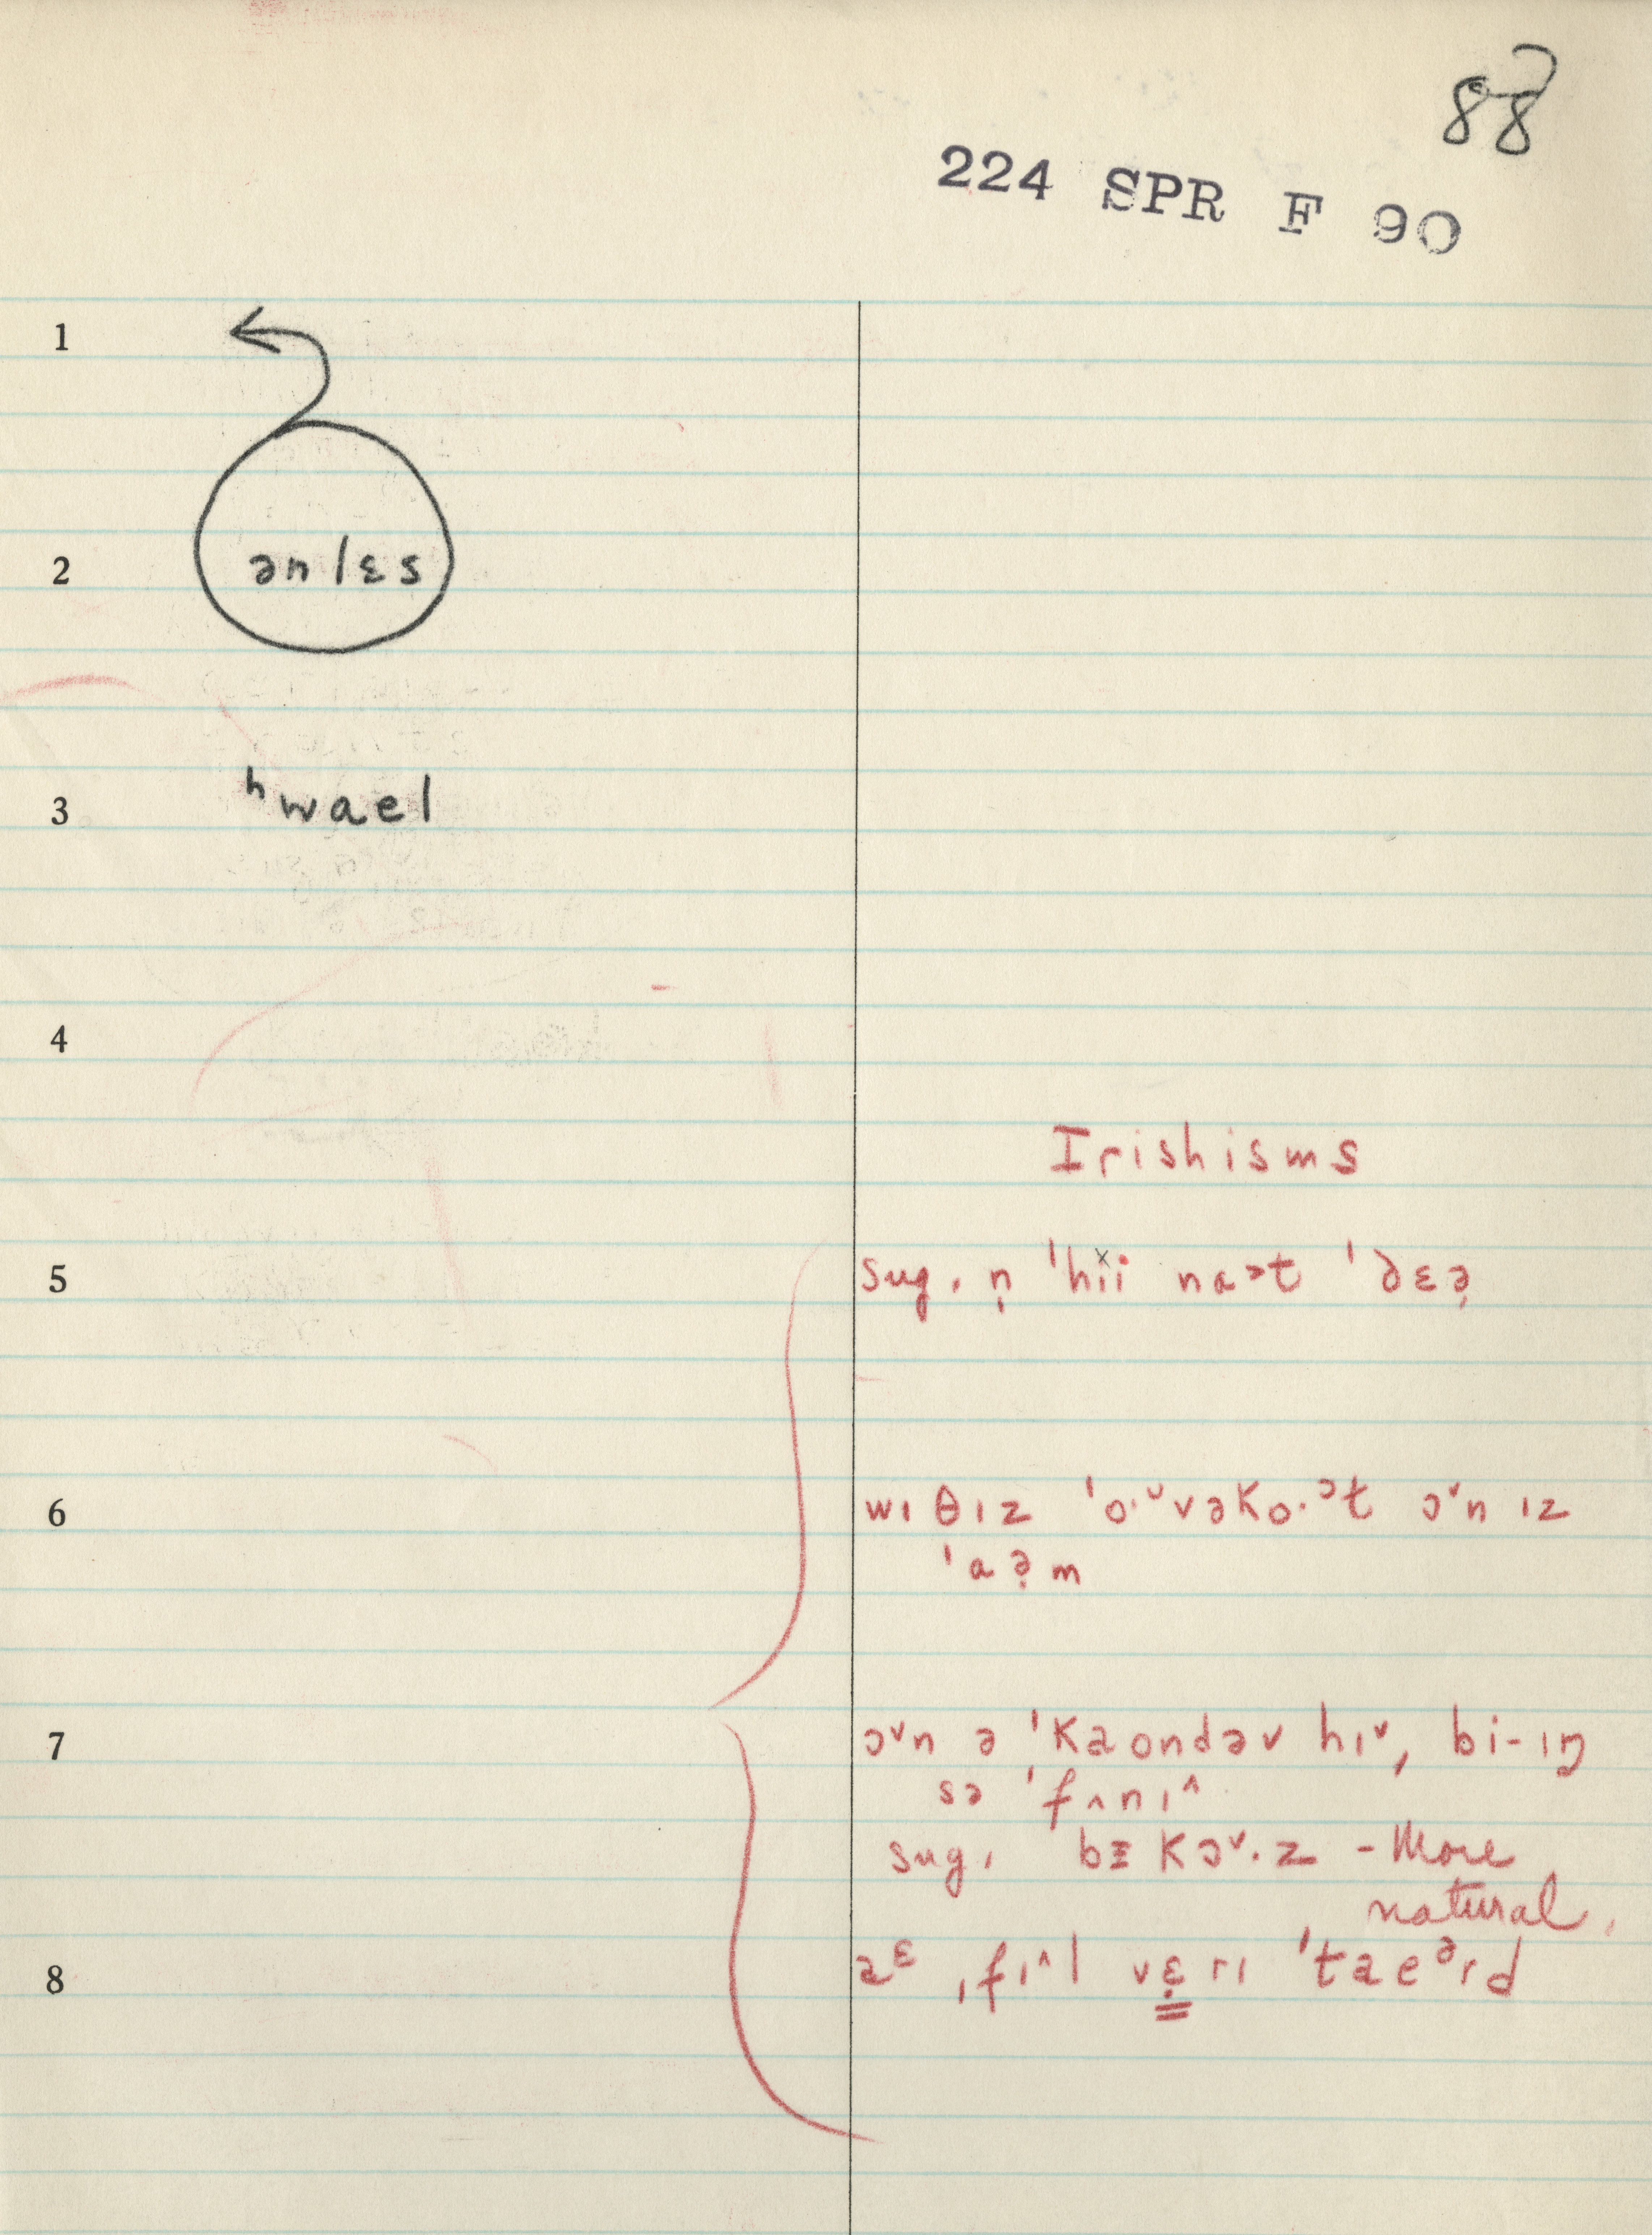 88
224 SPR F 90
1
2 ənlɛs
3 ʰwael
4
Irishisms
5 sug. n̩ ˈhïi na>t ˈðɛə̣
6 wɪ θɪz ˈo·ᵁvəko·ᵊt ɔᵛn ɪz
ˈaə̣m
7 ɔᵛn ə ˈkaondəv hɪᵛ, bi-ɪŋ
sə ˈfʌnɪ^
sug. bɪkɔᵛ·z - More
natural.
8 aᵋ ˌfɪ^l vɛ̣rɪ ˈtaeᵊrd